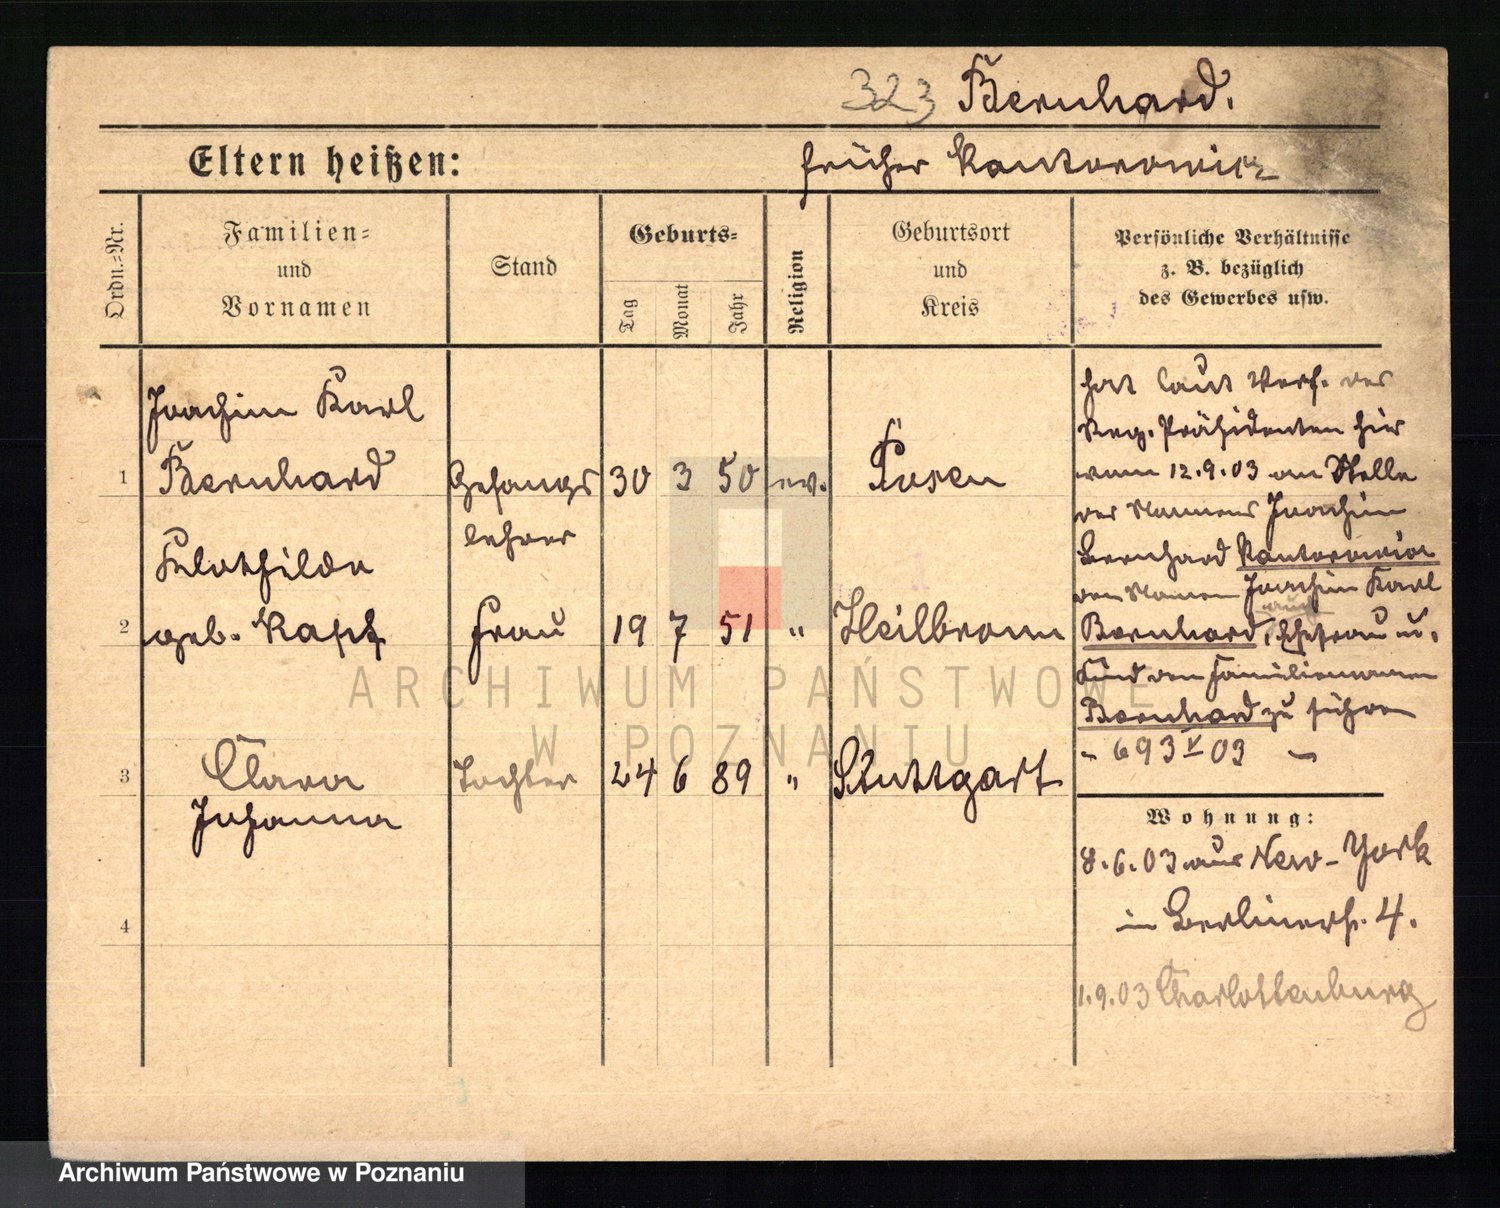 323 Bernhard.
Eltern heißen:
früher Kantorowicz
Ordn.-Nr.
Familien-
und
Vornamen
Stand
Geburts-
Tag
Monat
Jahr
Religion
Geburtsort
und
Kreis
Persönliche Verhältnisse
z. B. bezüglich
des Gewerbes usw.
Joachim Karl
1 Bernhard Gesangs 30 3 50 ev. Posen
lehrer
Klothilde
2 geb. Frau 19 7 51 " Heilbronn
3 Clara Tochter 24 6 89 " Stuttgart
Johanna
4
hat laut Verf. des
Reg. Präsidenten hier
vom 12.9.03 an Stelle
des Namens Joachim
Bernhard Kantorowicz
den Namen Joachim Karl
auch
Bernhard, Ehefrau u.
Kind den Familiennamen
Bernhard zu führen
- 693 V 03 -
Wohnung:
8.6.03 aus New-York
in Berlinerstr. 4.
1.9.03 Charlottenburg
ARCHIWUM PAŃSTWOWE
W POZNANIU
Archiwum Państwowe w Poznaniu